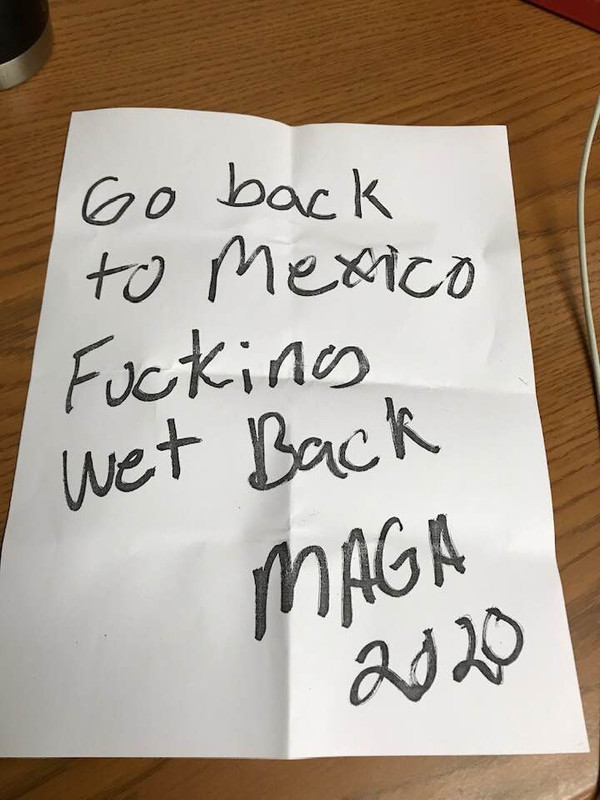 Go back
to Mexico
Fucking
wet Back
MAGA
2020